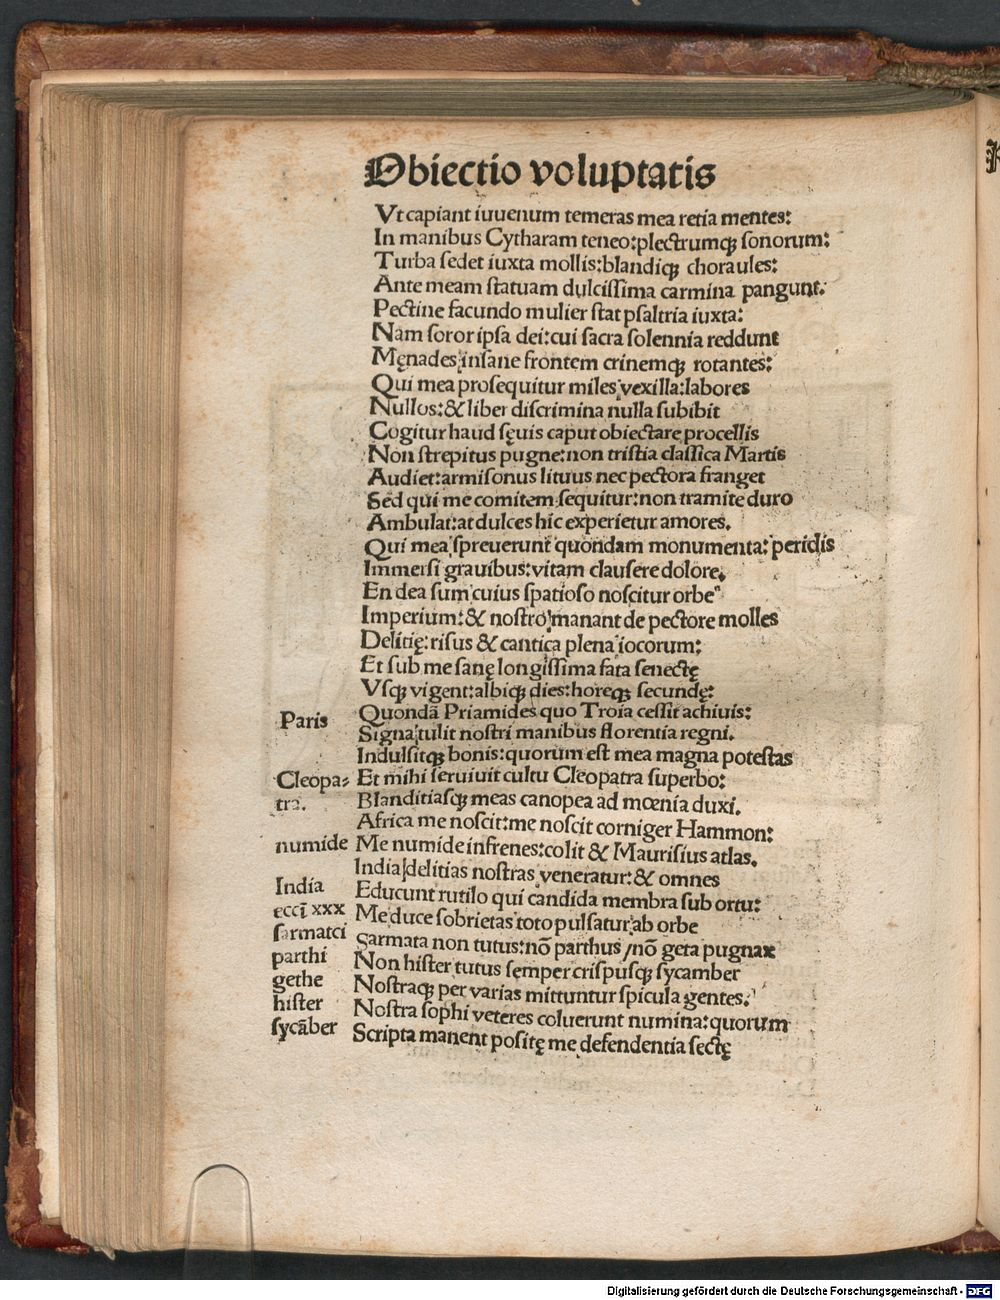 Obiectio voluptatis
Vt capiant iuuenum temeras mea retia mentes:
In manibus Cytharam teneo:plectrumqꝫ sonorum:
Turba sedet iuxta mollis:blandiqꝫ choraules:
Ante meam statuam dulcissima carmina pangunt:
Pectine facundo mulier stat psaltria iuxta:
Nam soror ipsa dei:cui sacra solennia reddunt
Męnades insane frontem crinemqꝫ rotantes:
Qui mea prosequitur miles vexilla:labores
Nullos:& liber discrimina nulla subibit
Cogitur haud sęuis caput obiectare procellis
Non strepitus pugne:non tristia classica Martis
Audiet:armisonus lituus nec pectora franget
Sed qui me comitem sequitur:non tramite duro
Ambulat:at dulces hic experietur amores.
Qui mea spreuerunt quondam monumenta:peridis
Immersi grauibus:vitam clausere dolore.
En dea sum cuius spatioso noscitur orbe
Imperium:& nostro manant de pectore molles
Delitię:risus & cantica plena iocorum:
Et sub me sanę longissima fata senectę
Vsqꝫ vigent:albiqꝫ dies:horeqꝫ secundę:
Paris Quondā Priamides quo Troia cessit achiuis:
Signa tulit nostri manibus florentia regni.
Indulsitqꝫ bonis:quorum est mea magna potestas
Cleopa= Et mihi seruiuit cultu Cleopatra superbo:
tra. Blanditiasqꝫ meas canopea ad mœnia duxi.
Africa me noscit:me noscit corniger Hammon:
numide Me numide infrenes:colit & Maurisius atlas.
India delitias nostras veneratur:& omnes
India Educunt rutilo qui candida membra sub ortu:
eccī xxx Me duce sobrietas toto pulsatur ab orbe
sarmatci Sarmata non tutus:nō parthus/nō geta pugnax
parthi Non hister tutus semper crispusqꝫ sycamber
gethe Nostraqꝫ per varias mittuntur spicula gentes.
hister Nostra sophi veteres coluerunt numina:quorum
sycāber Scripta manent positę me defendentia sectę
Digitalisierung gefördert durch die Deutsche Forschungsgemeinschaft - DFG